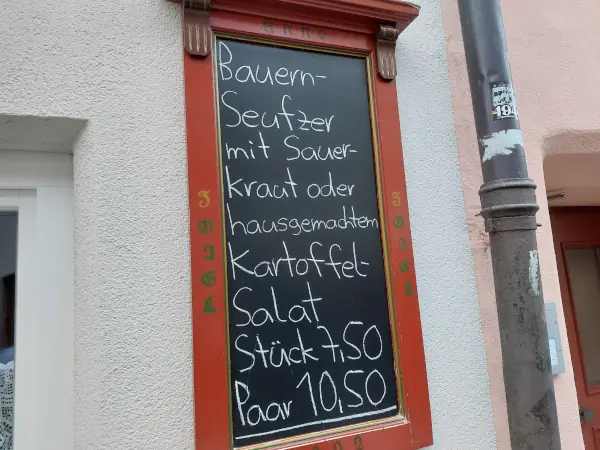 Bauern-
Seufzer
mit Sauer-
kraut oder
hausgemachtem
Kartoffel-
Salat
Stück 7,50
Paar 10,50
ZOIGL
ZOIGL